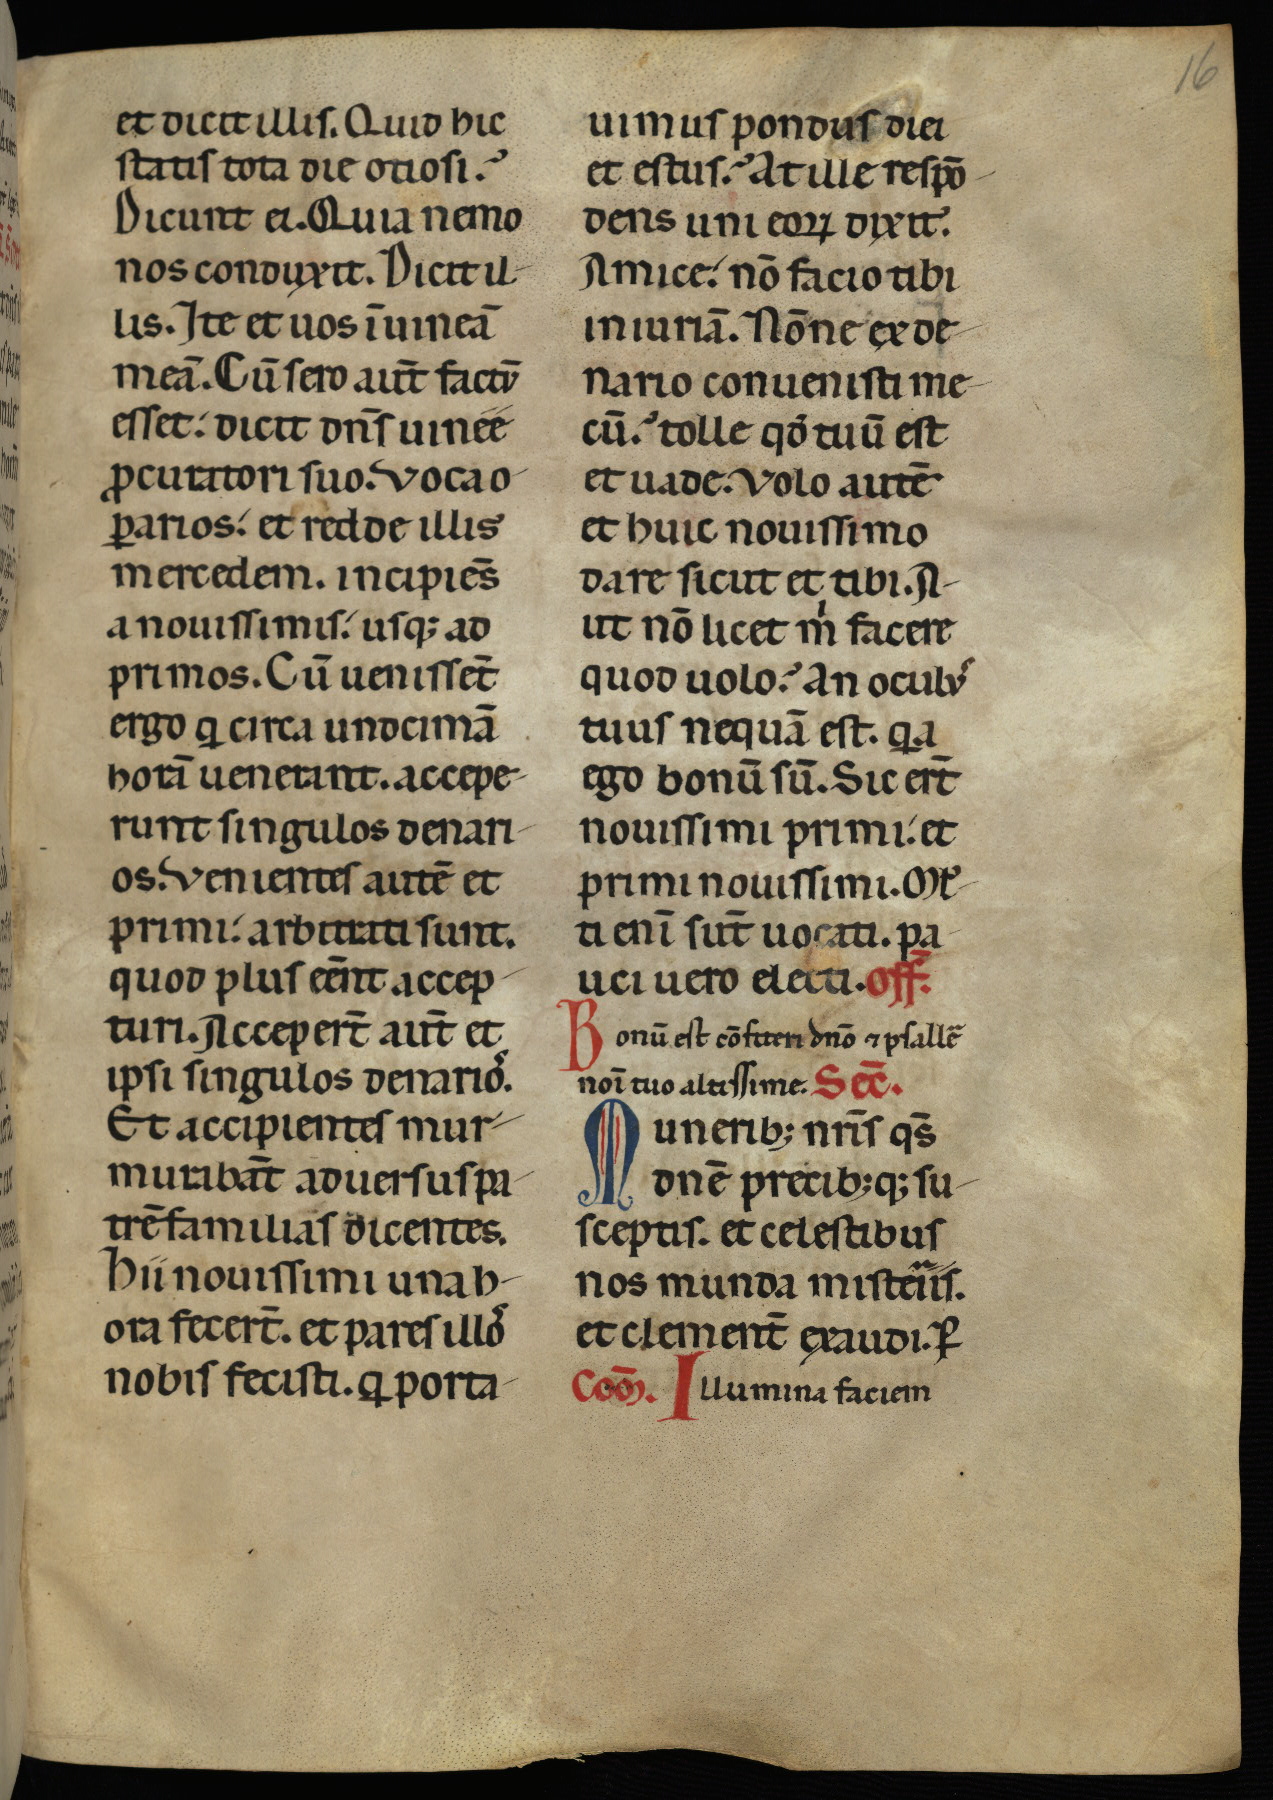 16
et dicit illis. Quid hic
statis tota die otiosi.
Dicunt ei. Quia nemo
nos conduxit. Dicit il-
lis. Ite et uos ī uineā
meā. Cū sero aut̄ factū
esset: dicit dn̄s uinee
ꝓcuratori suo. Voca o-
ꝑarios: et redde illis
mercedem. incipiēs
a nouissimis: usq; ad
primos. Cū uenisset̄
ergo q̇ circa undcimā
horā uenerant. accepe-
runt singulos denari-
os. Venientes autē et
primi: arbitrati sunt.
quod plus eēnt accep-
turi. Accepert̄ aut̄ et
ipsi singulos denarioˢ.
Et accipientes mur-
murabāt aduersus pa-
trē familias dicentes.
Hii nouissimi una h-
ora fecert̄. et pares illoˢ
nobis fecisti. q̇ porta-
uimus pondus diei
et estus. At ille respō-
dens uni eoꝝ dixit.
Amice: nō facio tibi
iniuriā. Nōne ex de-
nario conuenisti me-
cū. tolle qd̄ tuū est
et uade. Volo autē
et huic nouissimo
dare sicut et tibi. A-
ut nō licet m̍ facere
quod uolo. An oculuˢ
tuus nequā est. q̇a
ego bonū sū. Sic ert̄
nouissimi primi: et
primi nouissimi. Ml̄-
ti enī sūt uocati. pa-
uci uero electi. Off̄.
Bonū est cōfiteri dn̄o ⁊ psallē
noī tuo altissime. Sec̄.
Munerib; nr̄is qs̄
dn̄e precib; q; su-
sceptis. et celestibus
nos munda misteriis.
et clement̄ exaudi. ꝑ
Coō. Illumina faciem